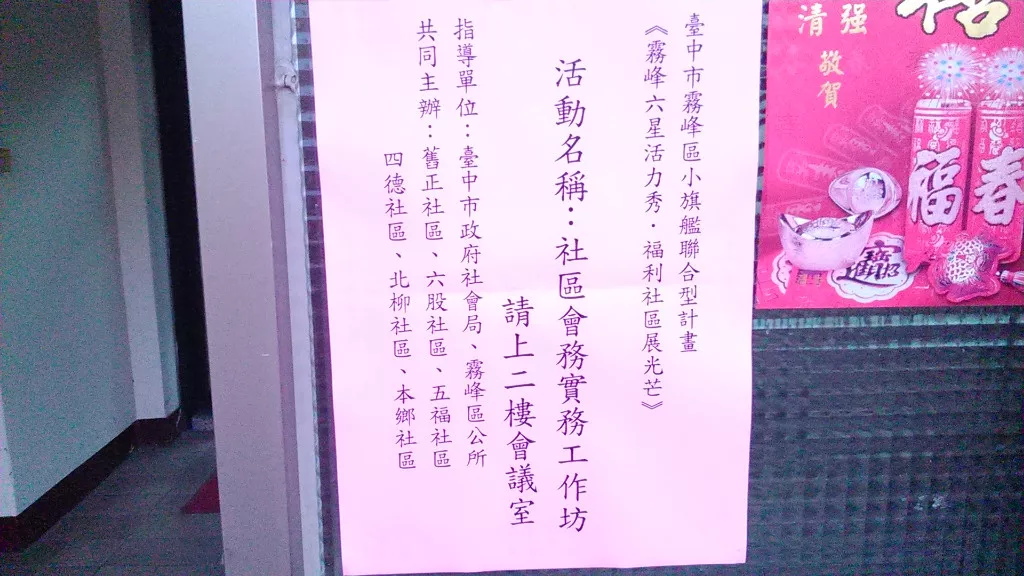 臺中市霧峰區小旗艦聯合型計畫
《霧峰六星活力秀·福利社區展光芒》
活動名稱：社區會務實務工作坊
請上二樓會議室
指導單位：臺中市政府社會局、霧峰區公所
共同主辦：舊正社區、六股社區、五福社區
四德社區、北柳社區、本鄉社區
强
清
敬賀
春
福